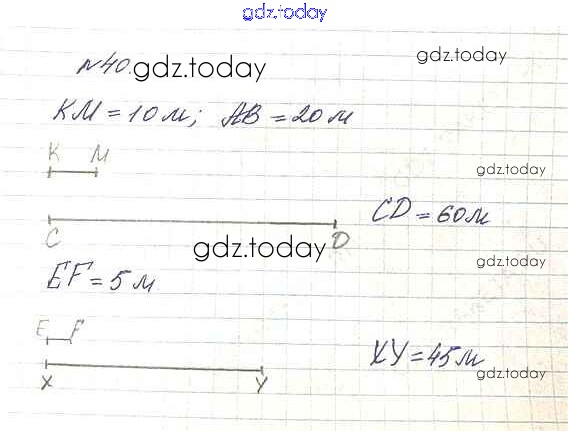 gdz.today
№40. gdz.today gdz.today
КМ = 10 м; АВ = 20 м
К М gdz.today
CD = 60 м
C D
gdz.today gdz.today
EF = 5 м
E F
XY = 45 м
gdz.today
X Y